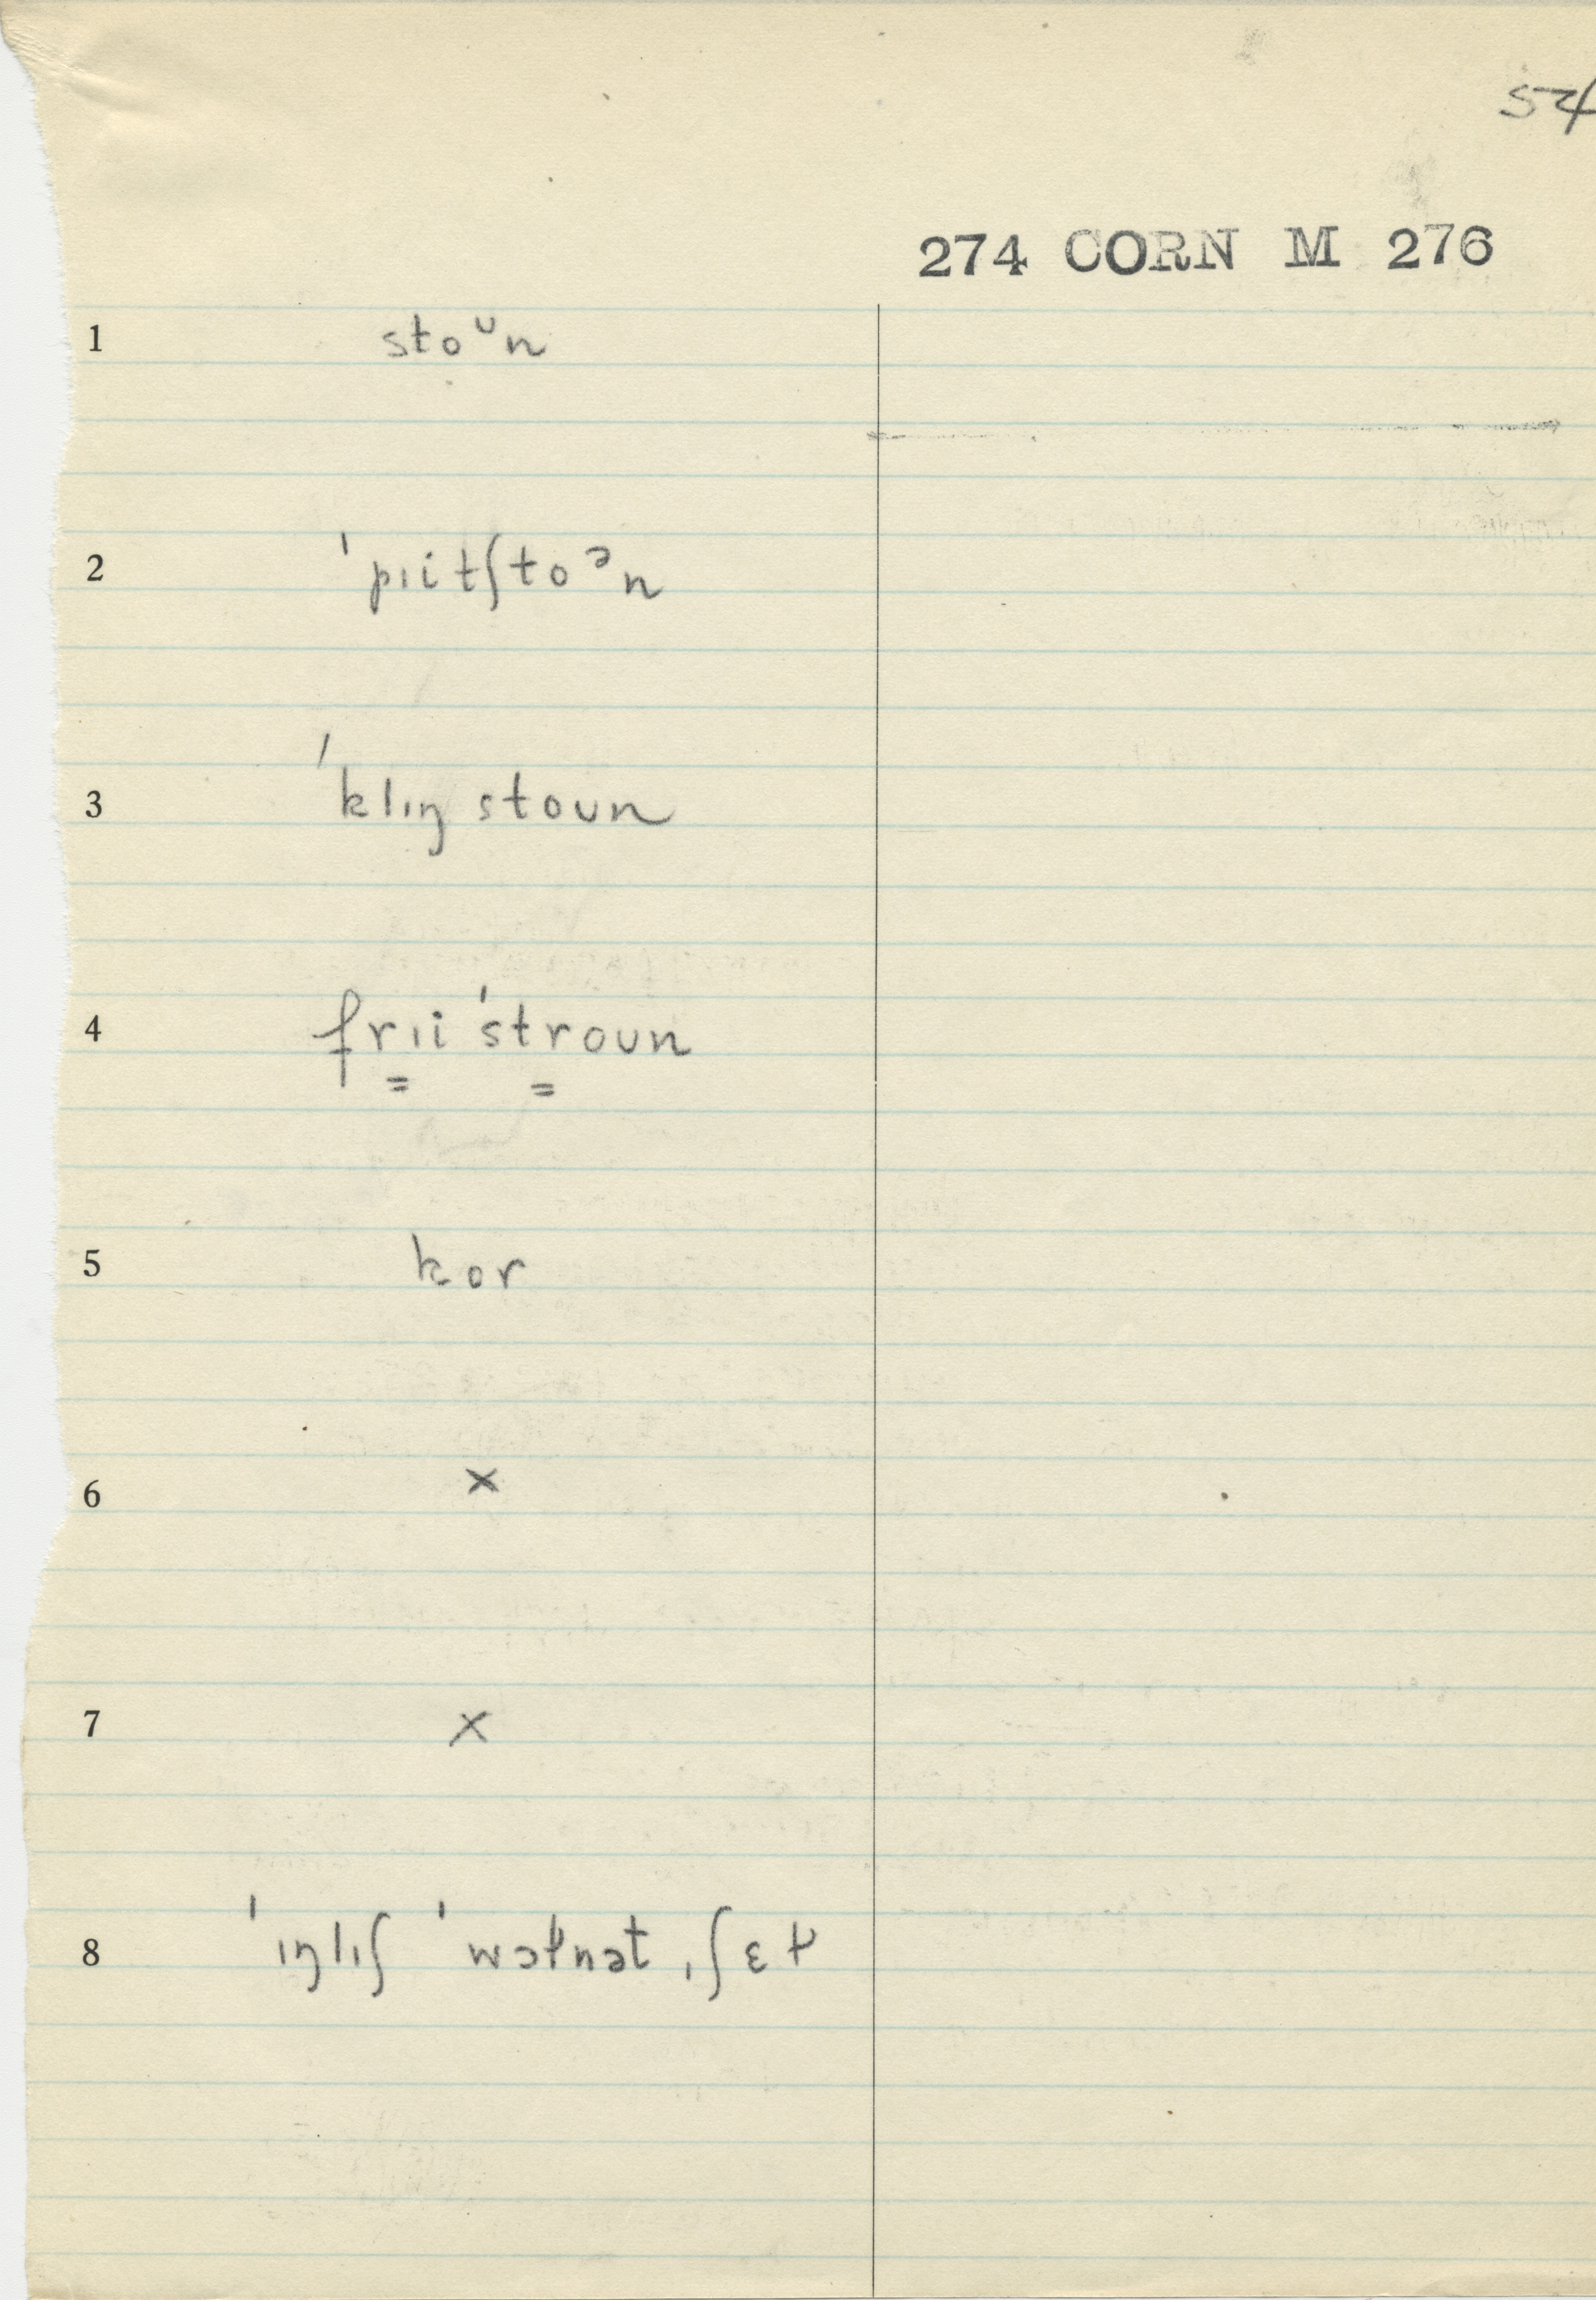 54
274 CORN M 276
1 stoᶷn
2 ˈpɪitʃtoᵊn
3 ˈklɪŋ stoʊn
4 frɪi ˈstroʊn
= =
5 kor
6 x
7 x
8 ˈɪŋlɪʃ ˈwɔɫnət ˌʃɛɫ